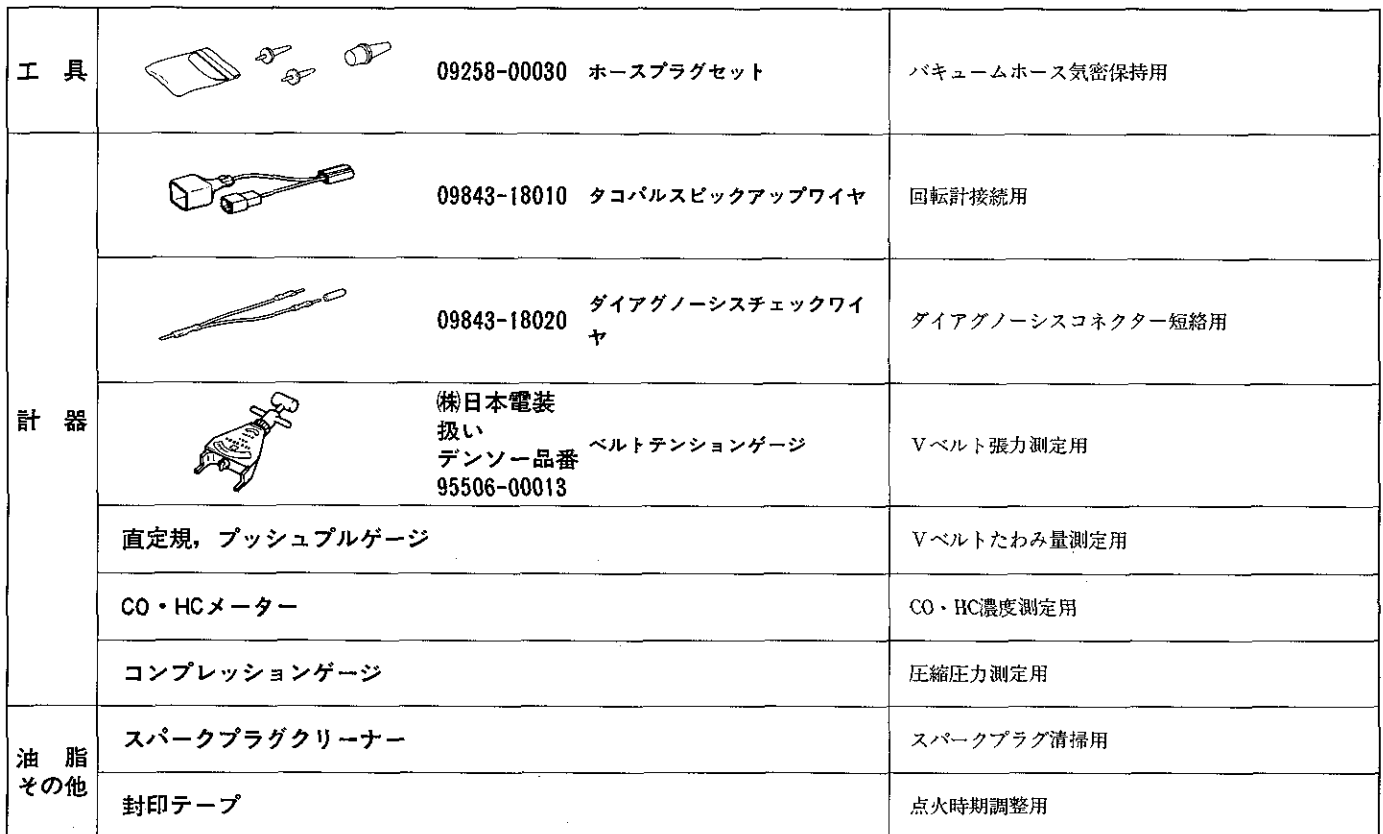 工 具
09258-00030 ホースプラグセット
バキュームホース気密保持用
計 器
09843-18010 タコパルスピックアップワイヤ
回転計接続用
09843-18020 ダイアグノーシスチェックワイ
ヤ
ダイアグノーシスコネクター短絡用
㈱日本電装
扱い
デンソー品番
95506-00013
ベルトテンションゲージ
Vベルト張力測定用
直定規，プッシュプルゲージ
Vベルトたわみ量測定用
CO・HCメーター
CO・HC濃度測定用
コンプレッションゲージ
圧縮圧力測定用
油 脂
その他
スパークプラグクリーナー
スパークプラグ清掃用
封印テープ
点火時期調整用